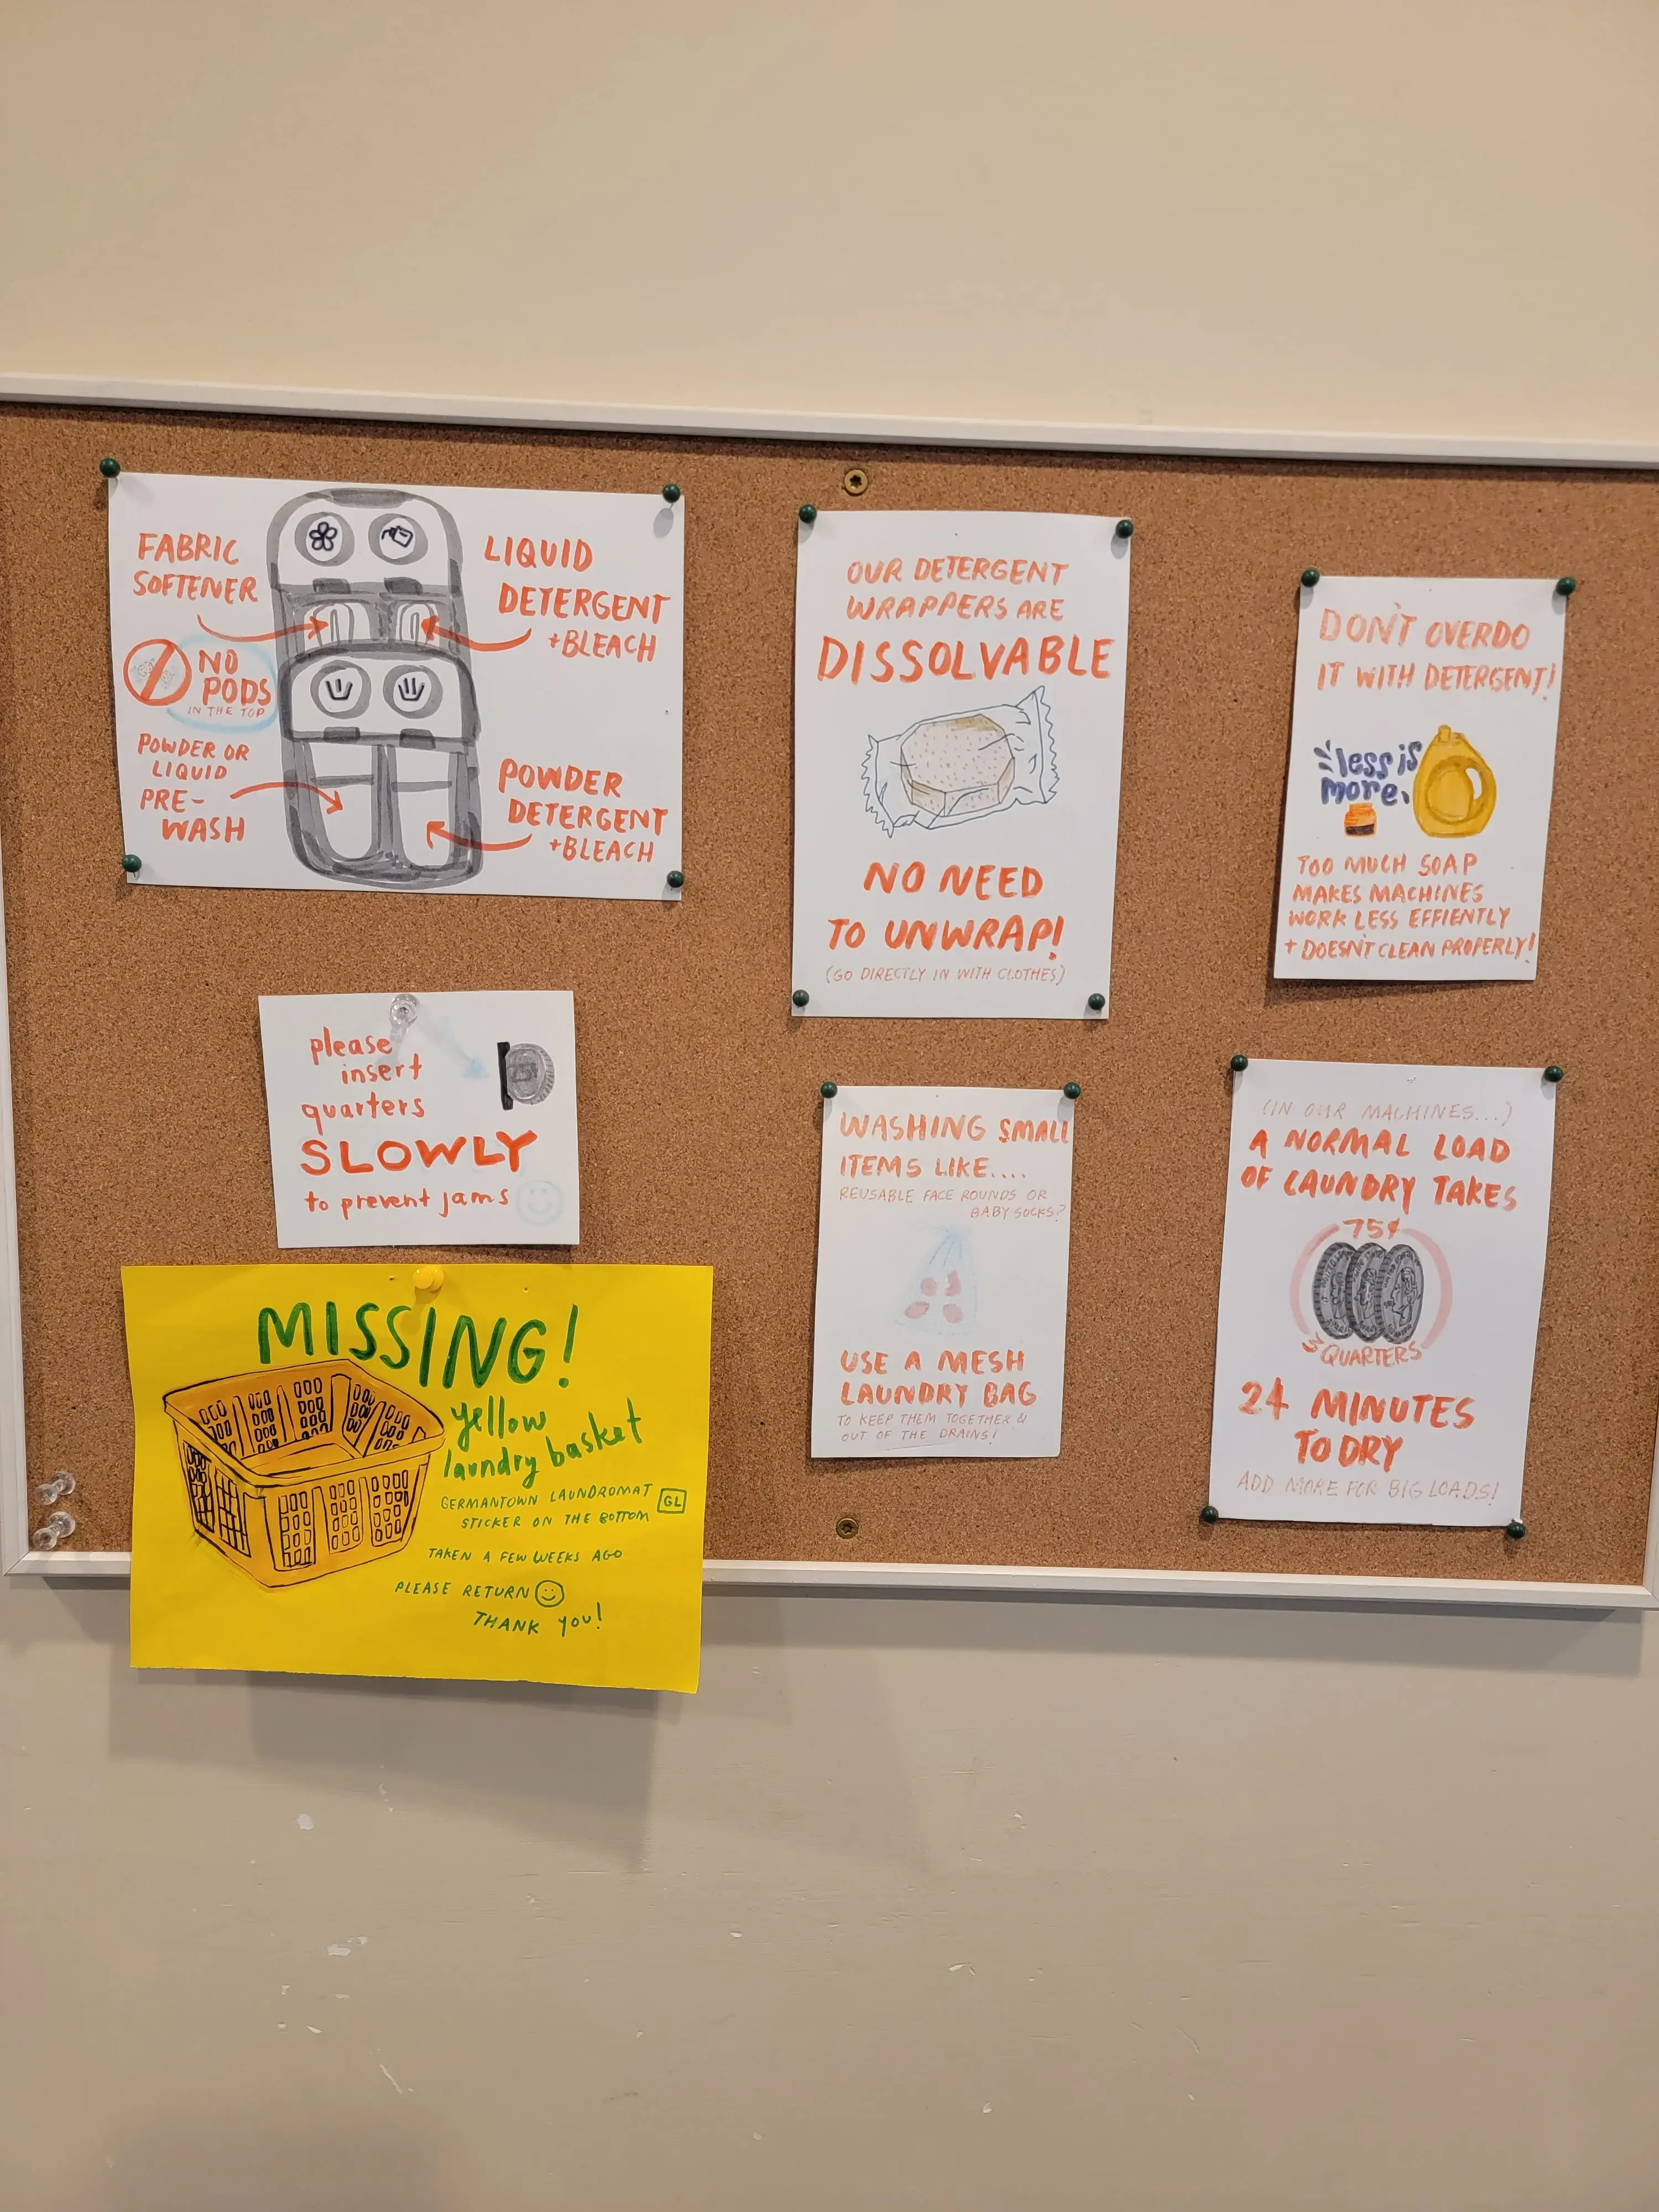 FABRIC
SOFTENER
LIQUID
DETERGENT
+BLEACH
NO
PODS
IN THE TOP
POWDER OR
LIQUID
PRE-
WASH
POWDER
DETERGENT
+BLEACH
OUR DETERGENT
WRAPPERS ARE
DISSOLVABLE
NO NEED
TO UNWRAP!
(GO DIRECTLY IN WITH CLOTHES)
DON'T OVERDO
IT WITH DETERGENT!
less is
more.
TOO MUCH SOAP
MAKES MACHINES
WORK LESS EFFIENTLY
+ DOESN'T CLEAN PROPERLY!
please
insert
quarters
SLOWLY
to prevent jams
25¢
WASHING SMALL
ITEMS LIKE....
REUSABLE FACE ROUNDS OR
BABY SOCKS?
USE A MESH
LAUNDRY BAG
TO KEEP THEM TOGETHER &
OUT OF THE DRAINS!
(IN OUR MACHINES...)
A NORMAL LOAD
OF LAUNDRY TAKES
75¢
3 QUARTERS
24 MINUTES
TO DRY
ADD MORE FOR BIG LOADS!
MISSING!
yellow
laundry basket
GERMANTOWN LAUNDROMAT GL
STICKER ON THE BOTTOM
TAKEN A FEW WEEKS AGO
PLEASE RETURN
THANK YOU!